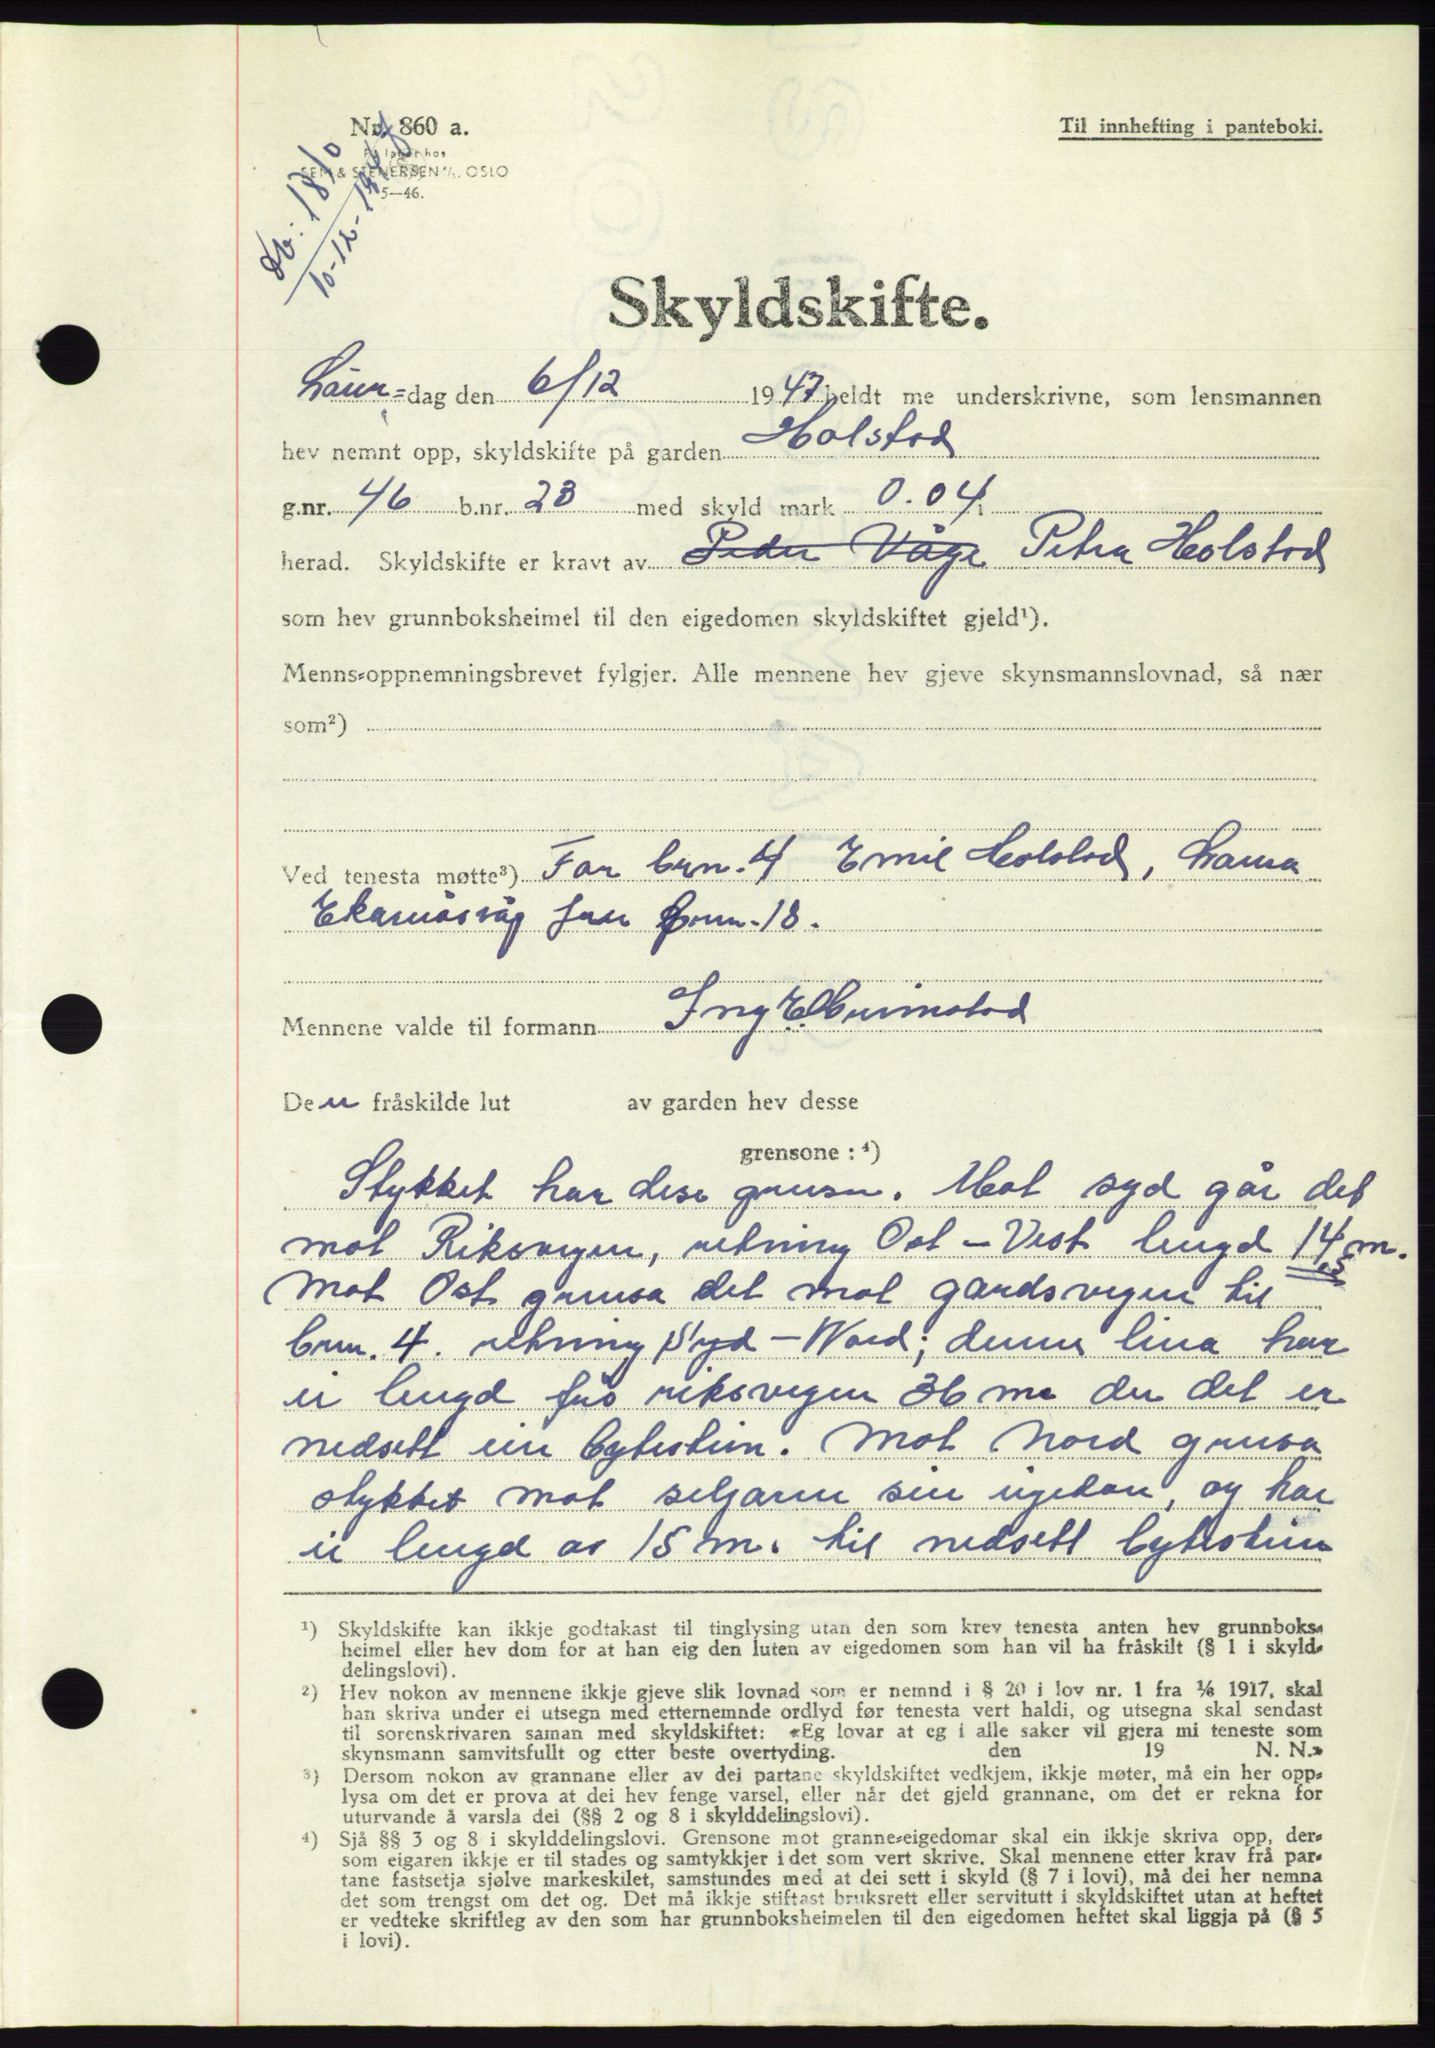 Nr. 860 a.
På lager hos
SEM & STENERSEN A/S, OSLO
5—46.
Til innhefting i panteboki.
1810
10-12-1947
Skyldskifte.
Laur=dag den 6/12 1947 heldt me underskrivne, som lensmannen
hev nemnt opp, skyldskifte på garden Holstad
g.nr. 46 b.nr. 23 med skyld mark 0.04 i
herad. Skyldskifte er kravt av Peder Våge Petra Holstad
som hev grunnboksheimel til den eigedomen skyldskiftet gjeld¹).
Menns-oppnemningsbrevet fylgjer. Alle mennene hev gjeve skynsmannslovnad, så nær
som²)
Ved tenesta møtte³) For brn. 4 Emil Holstad, Laura
Ekornåsvåg for brn. 18.
Mennene valde til formann Ing E Grimstad
Den fråskilde lut av garden hev desse
grensone : ⁴)
Stykket har dese grensa. Mot syd går det
mot Riksvegen, retning Ost — Vest lengd 14,5 m.
Mot Ost grensa det mot gardsvegen til
brn. 4. retning Syd — Nord; denne lina har
ei lengd frå riksvegen 36 m der det er
nedsett ein bytestein. Mot Nord grensa
stykket mot seljaren sin eigedom, og har
ei lengd av 15 m. til nedsett bytestein
¹) Skyldskifte kan ikkje godtakast til tinglysing utan den som krev tenesta anten hev grunnboks-
heimel eller hev dom for at han eig den luten av eigedomen som han vil ha fråskilt (§ 1 i skyld-
delingslovi).
²) Hev nokon av mennene ikkje gjeve slik lovnad som er nemnd i § 20 i lov nr. 1 fra 1/6 1917, skal
han skriva under ei utsegn med etternemnde ordlyd før tenesta vert haldi, og utsegna skal sendast
til sorenskrivaren saman med skyldskiftet: «Eg lovar at eg i alle saker vil gjera mi teneste som
skynsmann samvitsfullt og etter beste overtyding. den 19 N. N.»
³) Dersom nokon av grannane eller av dei partane skyldskiftet vedkjem, ikkje møter, må ein her opp-
lysa om det er prova at dei hev fenge varsel, eller når det gjeld grannane, om det er rekna for
uturvande å varsla dei (§§ 2 og 8 i skylddelingslovi).
⁴) Sjå §§ 3 og 8 i skylddelingslovi. Grensone mot granne-eigedomar skal ein ikkje skriva opp, der-
som eigaren ikkje er til stades og samtykkjer i det som vert skrive. Skal mennene etter krav frå par-
tane fastsetja sjølve markeskilet, samstundes med at dei sett i skyld (§ 7 i lovi), må dei her nemna
det som trengst om det og. Det må ikkje stiftast bruksrett eller servitutt i skyldskiftet utan at heftet
er vedteke skriftleg av den som har grunnboksheimelen til den eigedomen heftet skal liggja på (§ 5
i lovi).